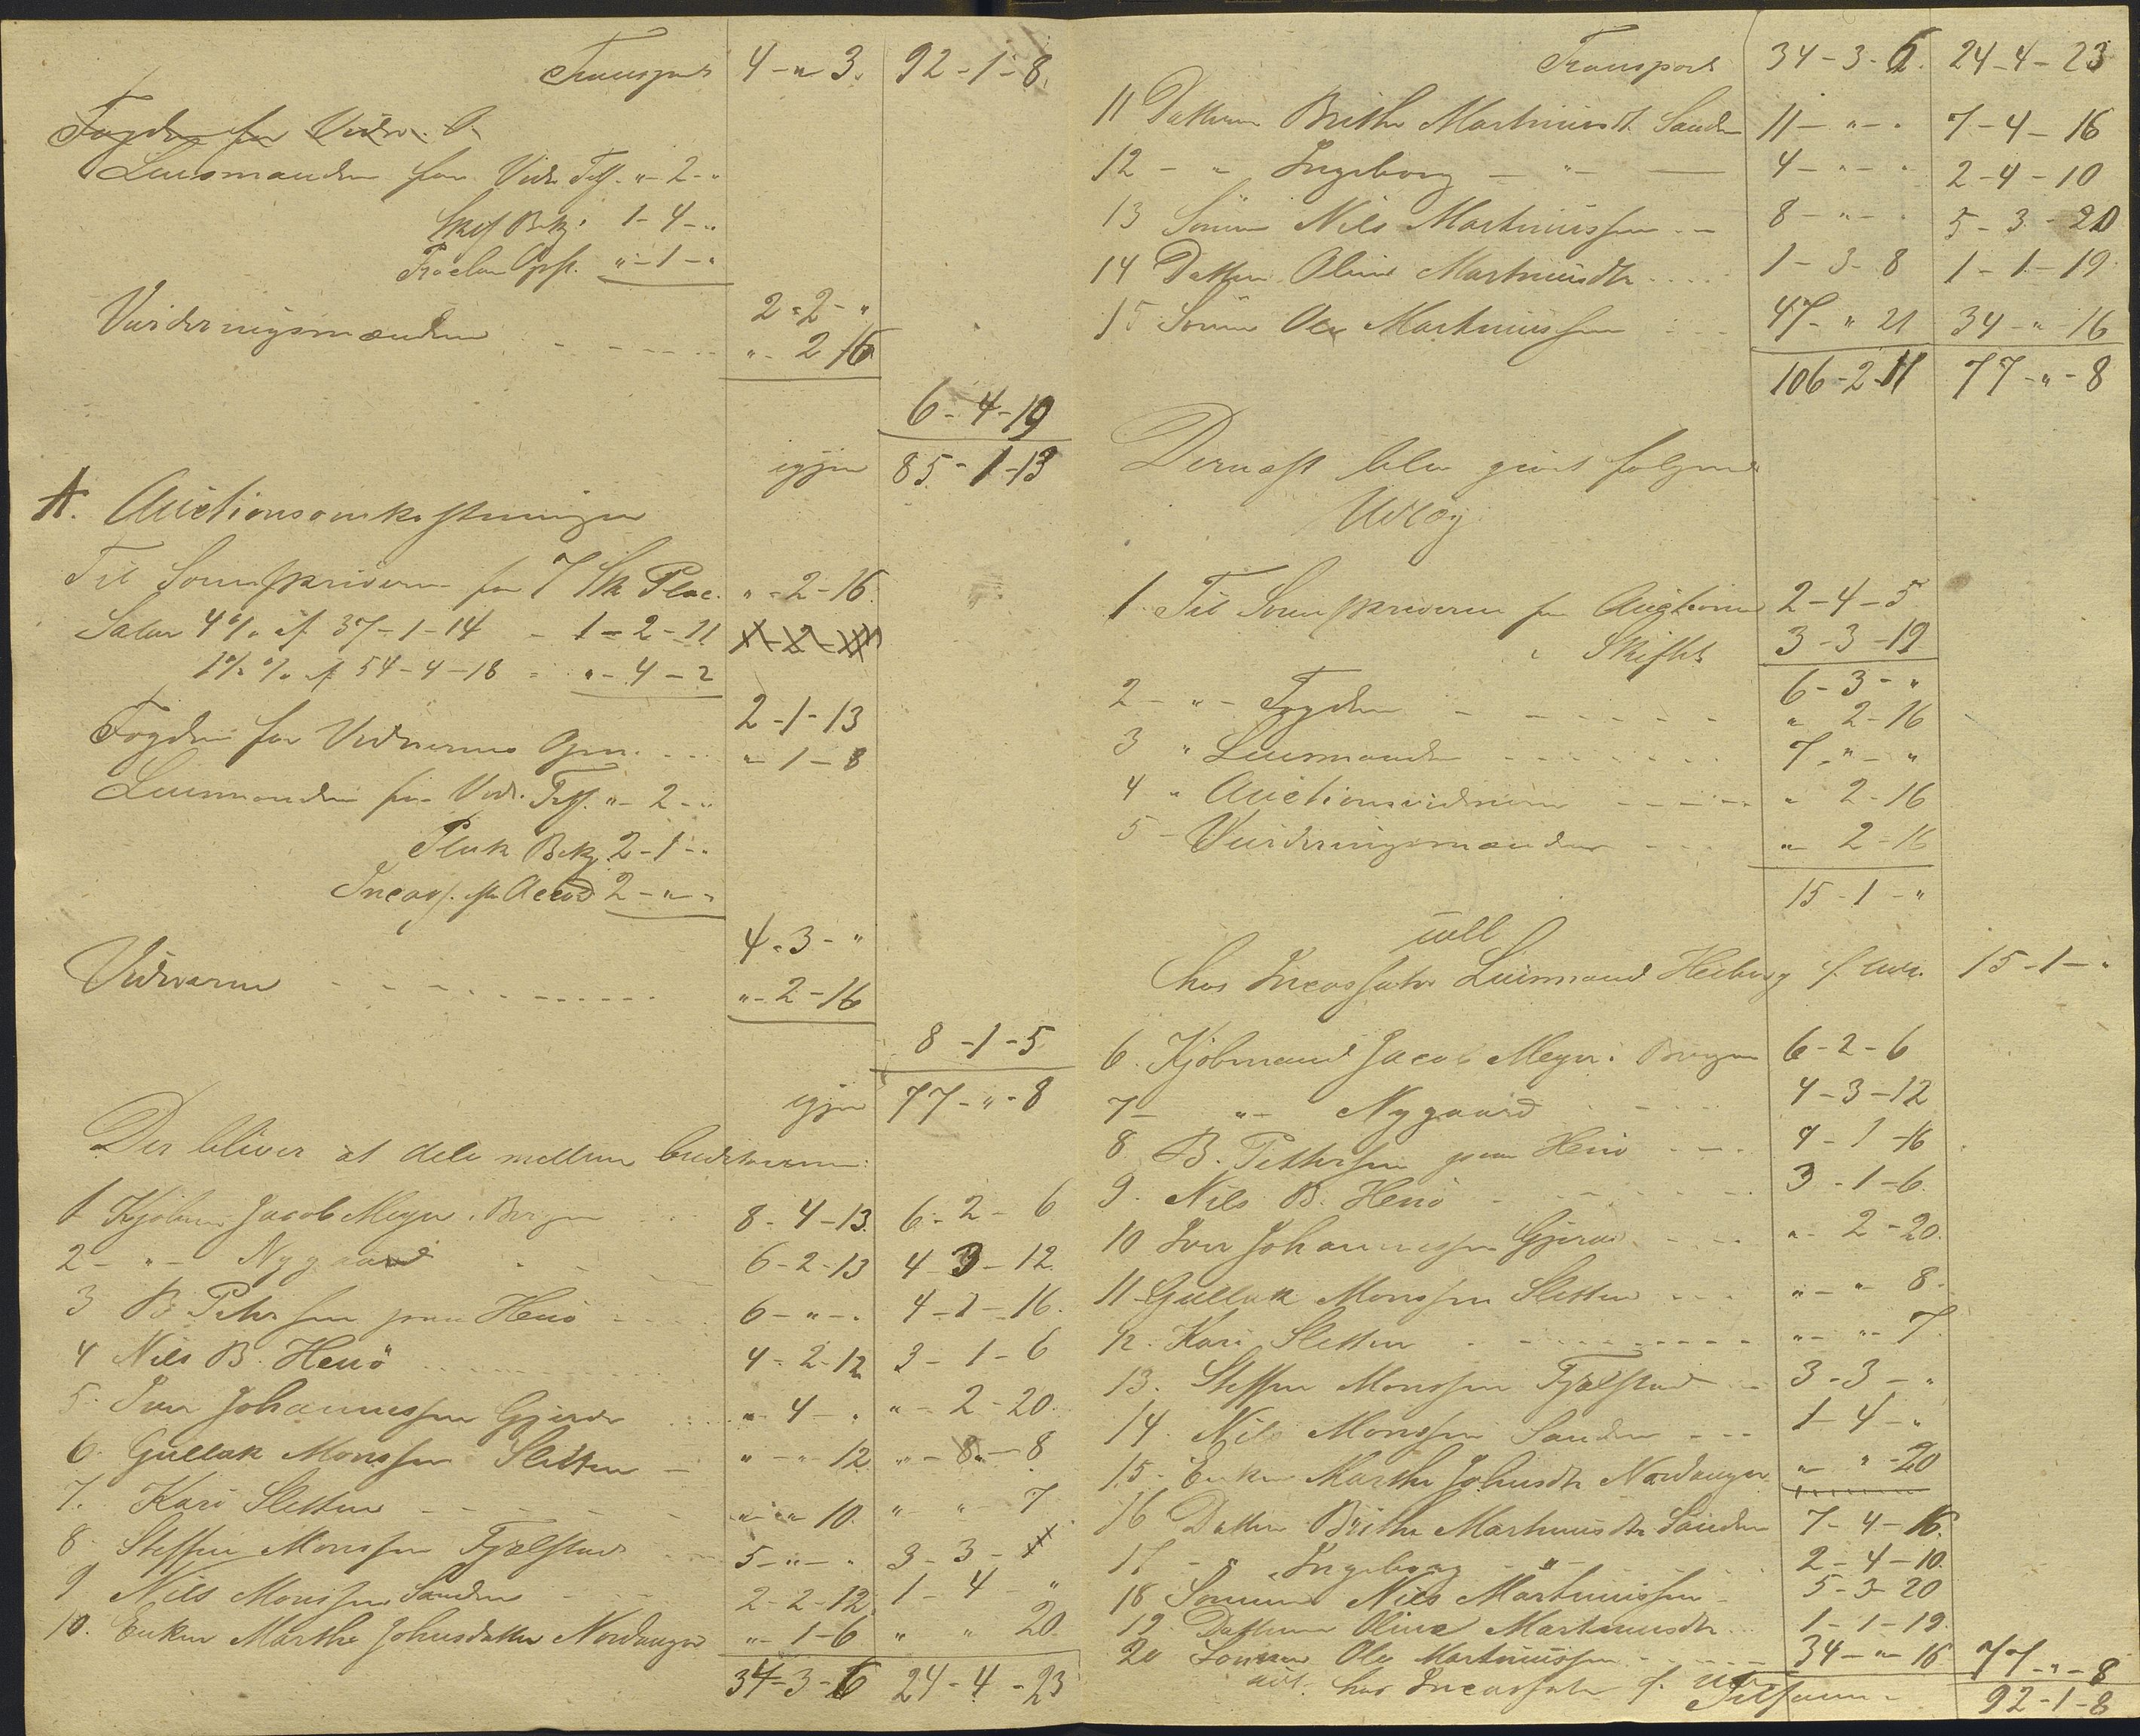 Transport 4 - " 3. 92 - 1 - 8.
Fogden for Vidn. O.
Lensmanden for Vidn. Tilf. " - 2 - "
Skif Bekj. 1 - 4 - "
Proclam Opsl. " - 1 - "
2 - 2 - "
Vurderingsmændene " - 2 - 16
6 - 4 - 19
igjen 85 - 1 - 13
A. Auctionsomkostninger
Til Sorenskriveren for 7 Sk Plac. " - 2 - 16.
Salar 4% af 37 - 1 - 14 - 1 - 2 - 11
1½ % af 54 - 4 - 18 - " - 4 - 2
2 - 1 - 13
Fogden for Vidnernes Opn. " - 1 - 8
Lensmanden for Vidn. Tilf. " - 2 - "
Plak Bekj. 2 - 1 - "
Incass. efter Accord 2 - " - "
4 - 3 - "
Vidnerne " - 2 - 16
8 - 1 - 5
igjen 77 - " - 8
Der bliver at dele mellem Creditorerne:
1 Kjøbm. Jacob Meyer i Bergen 8 - 4 - 13. 6 - 2 - 6
2 - " - Nygaard 6 - 2 - 13 4 - 3 - 12.
3 B. Petersen paa Henö 6 - " - " 4 - 1 - 16.
4 Nils B. Henö 4 - 2 - 12 3 - 1 - 6
5. Iver Johannessen Gjerde " - 4 - " " - 2 - 20.
6. Gullak Monssen Sletten " - " - 12 " - " - 8
7. Kari Sletten " - " 10. " " - 7
8. Steffen Monssen Fjælstad 5 - " - " 3 - 3 -
9 Nils Monssen Sanden 2 - 2 - 12. 1 - 4 - "
10. Enken Marthe Johnsdatter Nordanger " - 1 - 6 " " 20.
34 - 3 - 6 24 - 4 - 23
Transport 34 - 3 - 6. 24 - 4 - 23
11 Datteren Brithe Martinusdt. Sanden 11 - " - " 7 - 4 - 16
12 - " Ingeborg - " - 4 - " - " 2 - 4 - 10
13 Sönnen Nils Martinussen 8 - " - " 5 - 3 - 20
14 Datteren Oline Martinusdtr 1 - 3 - 8 1 - 1 - 19
15 Sönnen Ole Martinussen 47 - " 21 34 - " - 16
106 - 2 - 11 77 - " - 8
Dernæst blev gjort følgende
Udlæg
1. Til Sorenskriveren for Auctionen 2 - 4 - 5
" Skiftet 3 - 3 - 19
6 - 3 - "
2 - " - Fogden " 2 - 16
3 " Lensmanden 7 - " - "
4 " Auctionsvidnerne " 2 - 16
5 - Vurderingsmændene " 2 - 16
15 - 1 - "
udl
hos Incassator Lensmand Heiberg 15 - 1 - "
6. Kjöbmand Jacob Meyer i Bergen 6 - 2 - 6
7 - " - Nygaard 4 - 3 - 12
8 B. Pettersen paa Henö 4 - 1 - 16
9. Nils B. Henö 3 - 1 - 6.
10 Iver Johannessen Gjerde " - 2 - 20.
11 Gullak Monssen Sletten " - " - 8.
12. Kari Sletten " - " - 7.
13. Steffen Monssen Fjælstad 3 - 3 - "
14. Nils Monssen Sanden 1 - 4 - "
15. Enken Marthe Johnsdtr Nordanger " " - 20
16 Datteren Brithe Martinusdtr Sanden 7 - 4 - 16.
17 - " Ingeborg - " - 2 - 4 - 10.
18 Sönnen Nils Martinussen 5 - 3 - 20
19. Datteren Oline Martinusdtr 1 - 1 - 19.
20 Sönnen Ole Martinussen 34 - " - 16 77 - " - 8
udl. hos Incassator
Tilsammen 92 - 1 - 8